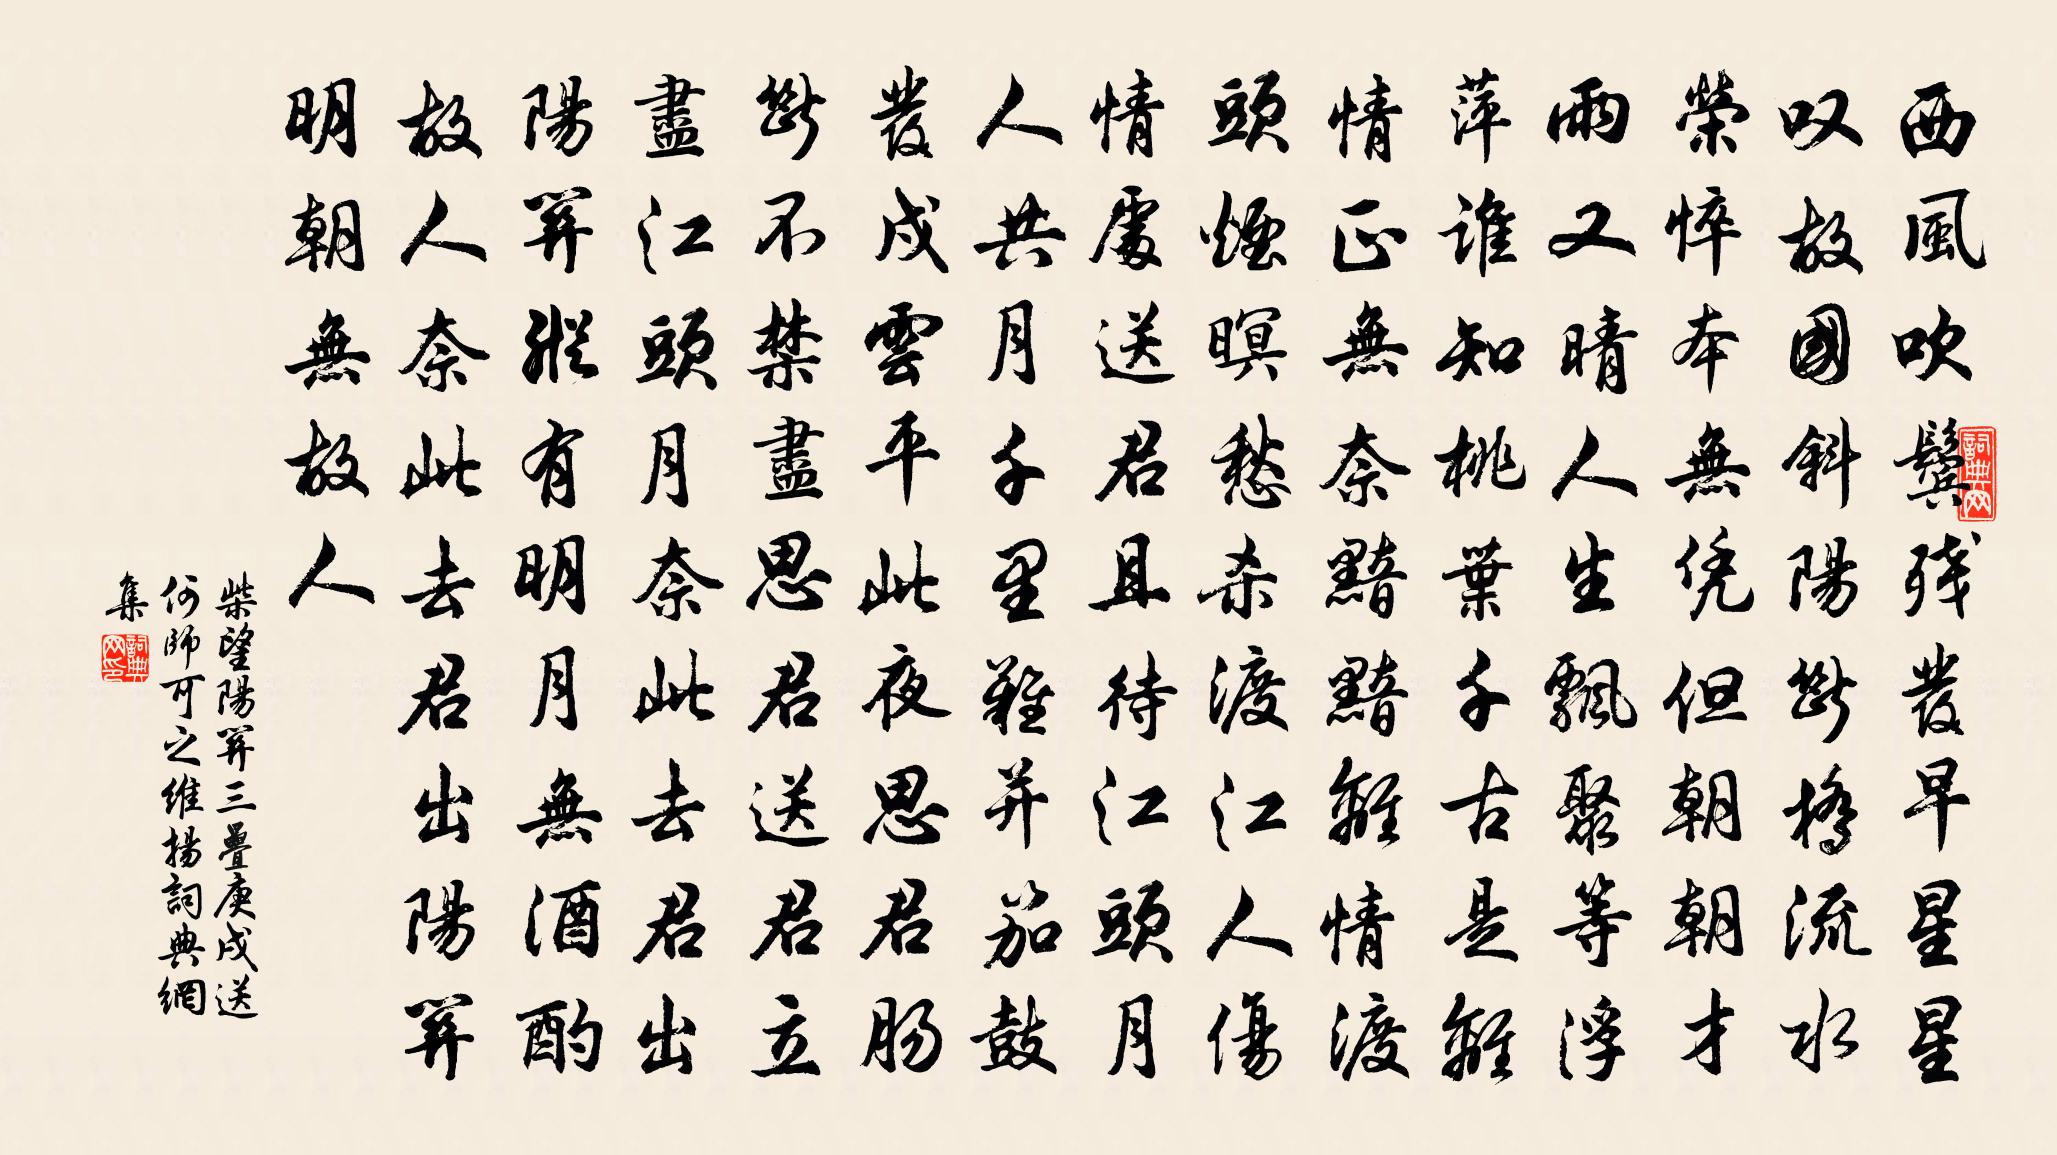 西風吹鬢殘發早星星
叹故國斜陽斷橋流水
榮悴本無凭但朝朝才
雨又晴人生飄聚等浮
萍誰知桃葉千古是離
情正無奈黯黯離情渡
頭煙暝愁杀渡江人傷
情處送君且待江頭月
人共月千里難并笳鼓
發戍雲平此夜思君肠
斷不禁盡思君送君立
盡江頭月奈此去君出
陽關縱有明月無酒酌
故人奈此去君出陽關
明朝無故人
柴望陽關三疊庚戌送
何師可之維揚詞典網
集
詞典网
詞典网印